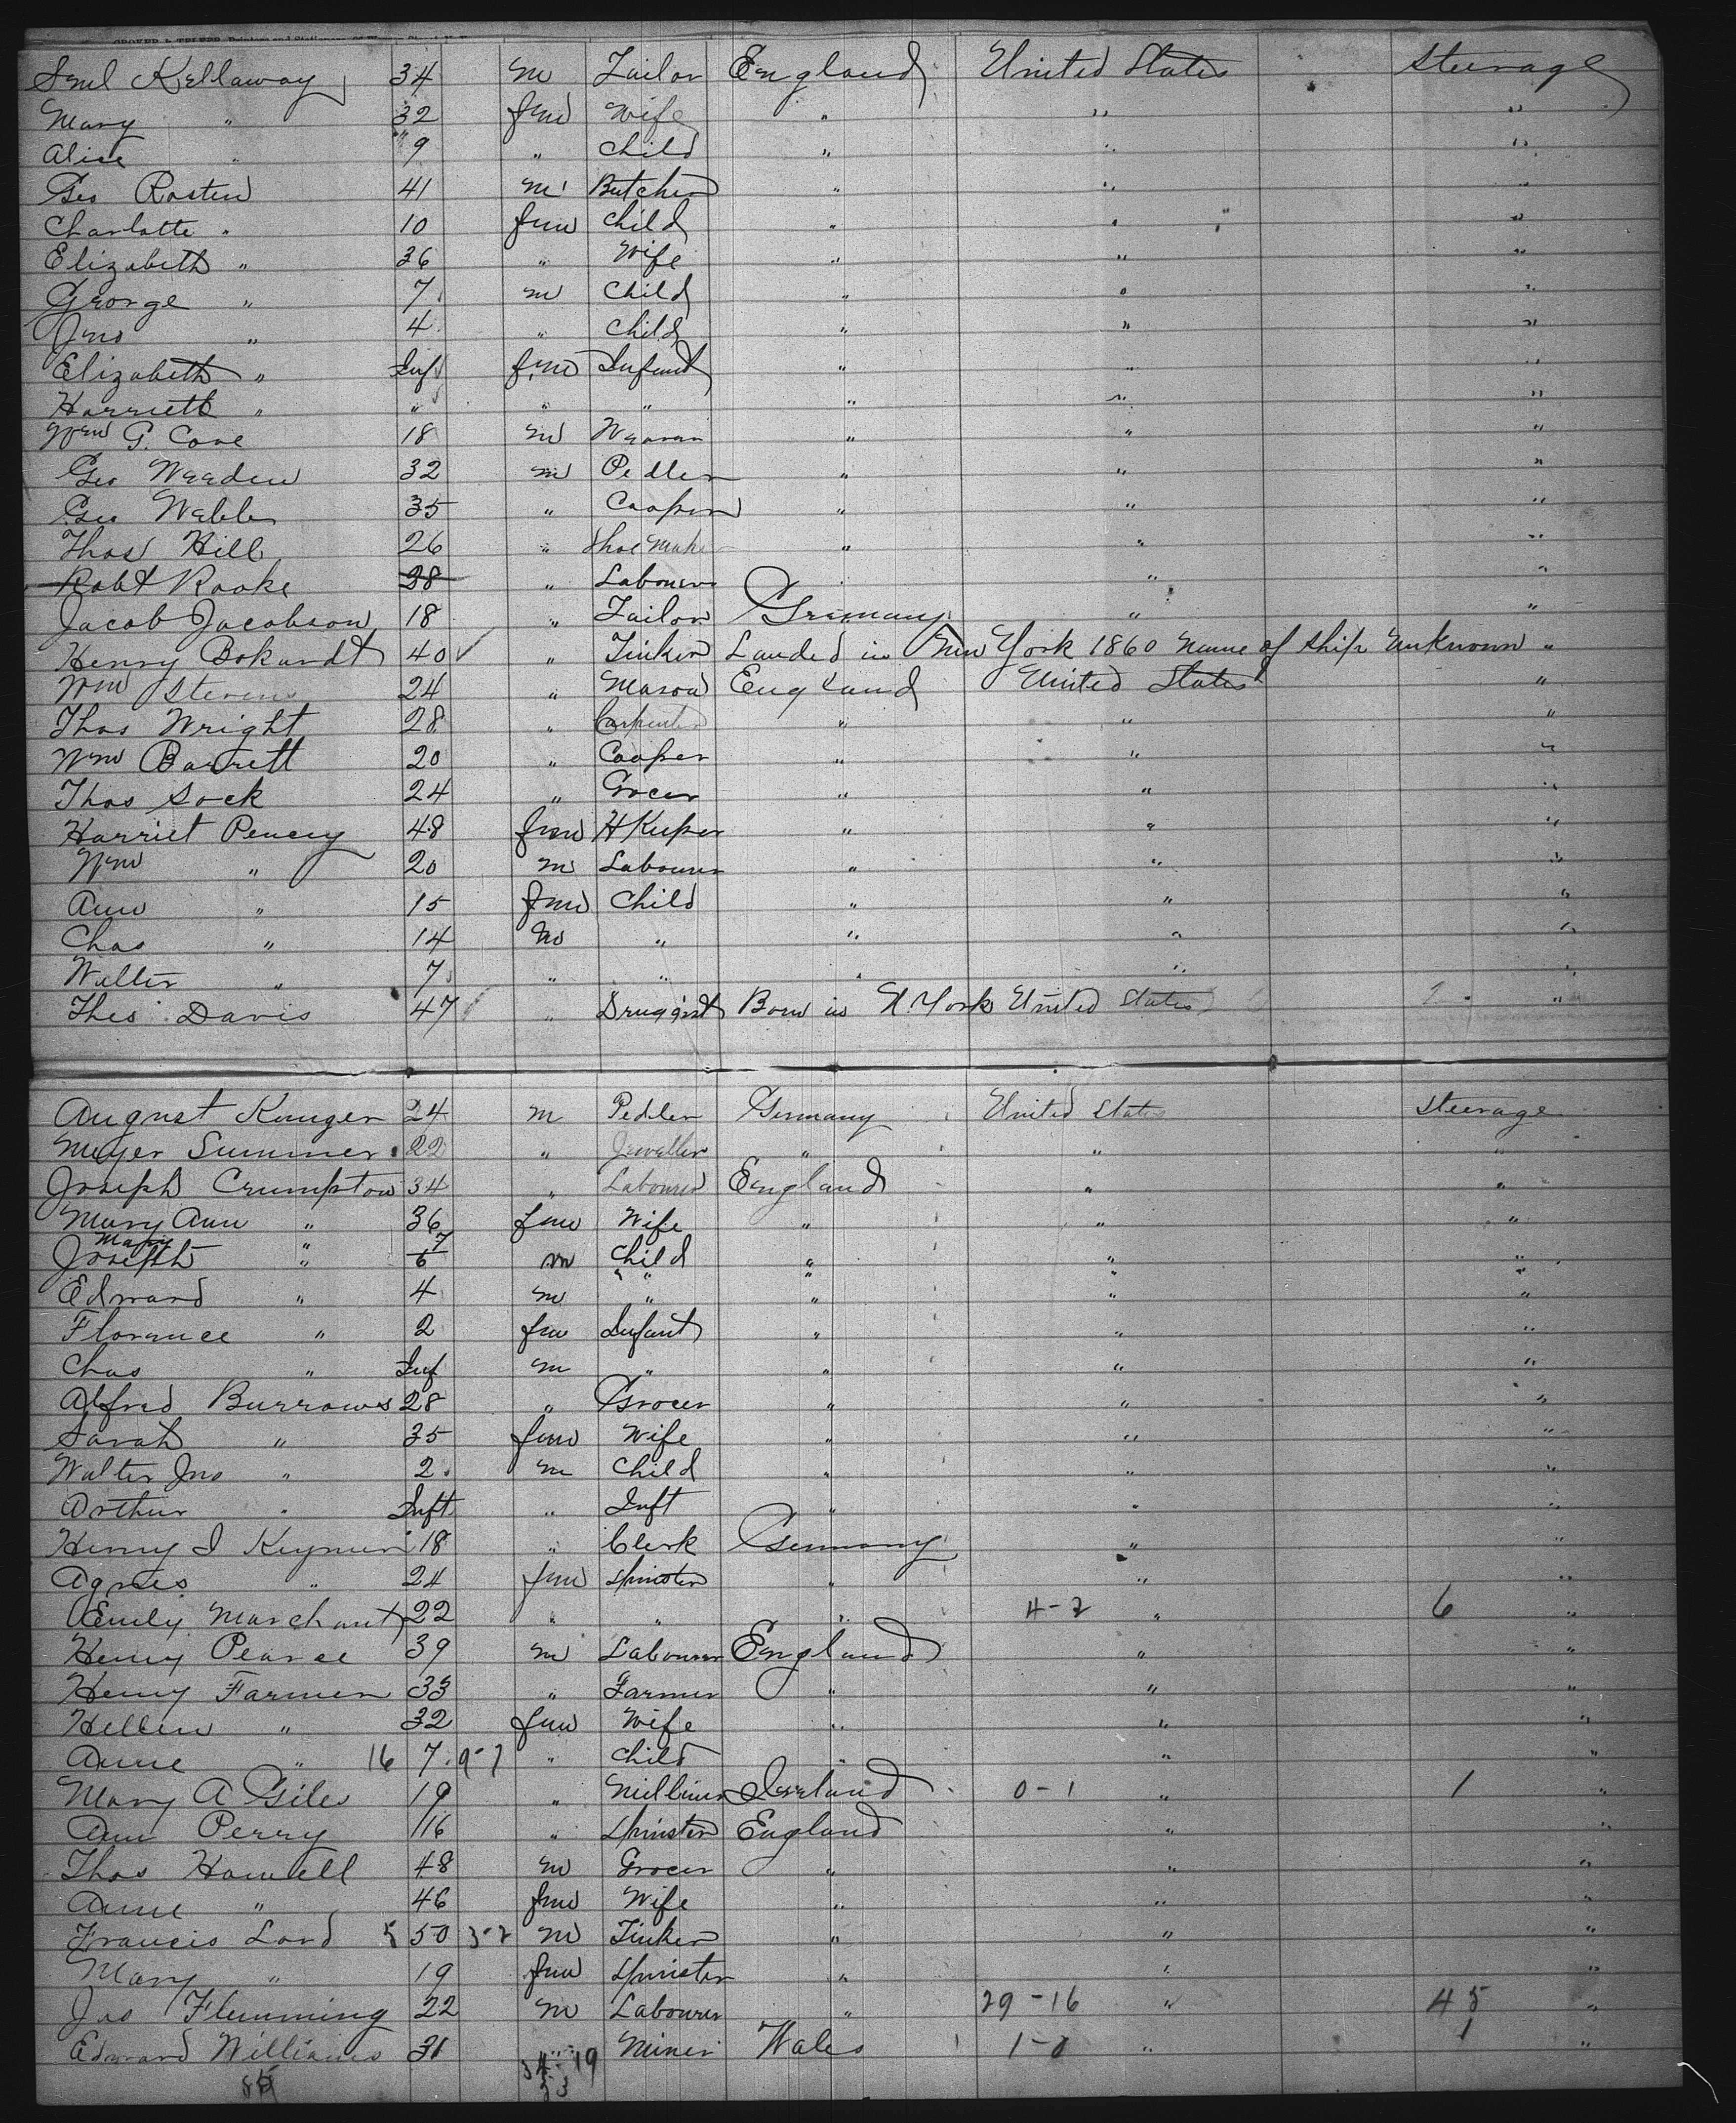 Saml Kellaway 34 m Tailor England United States Steerage
Mary " 32 fem Wife " " "
Alice " 9 " Child " " "
Geo Rosten 41 m Butcher " " "
Charlotte " 10 fem Child " " "
Elizabeth " 36 " Wife " " "
George " 7 m Child " " "
Jno " 4 " Child " " "
Elizabeth " Inf fem Infant " " "
Harriett " " " " " " "
Wm G. Cove 18 m " "
Geo Weeden 32 m Pedler " " "
Geo Webber 35 " Cooper " " "
Thos Hill 26 " Shoe Maker " " "
Robt Rooke 28 " Labourer " " "
Jacob Jacobson 18 " Tailor Germany " "
Henry Bokandt 40 " Tinker Landed in New York 1860 name of ship unknown "
Wm Stevens 24 " Mason England United States "
Thos Wright 28 " Carpenter " " "
Wm Barrett 20 " Cooper " " "
Thos Sock 24 " Grocer " " "
Harriet Pency 48 fem H Keeper " " "
Wm " 20 m Labourer " " "
Ann " 15 fem Child " " "
Chas " 14 m " " " "
Walter " 7 " " " " "
Thos Davis 47 " Druggist Born in N. York United States "
August Kruger 24 m Pedler Germany United States Steerage
Meyer Summer 22 " Jeweller " " "
Joseph Crumpton 34 " Labourer England " "
Mary Ann " 36 fem Wife " " "
Mary 7
Joseph " 6 m Child " " "
Edward " 4 m " " " "
Florence " 2 fem Infant " " "
Chas " Inf m " " " "
Alfred Burrows 28 " Grocer " " "
Sarah " 35 fem Wife " " "
Walter Jno " 2 m Child " " "
Arthur " Inft " Inft " " "
Henry I 18 " Clerk Germany " "
Agnes " 24 fem Spinster " " "
Emily Marchant 22 " " " 4-2 " 6 "
Henry Pearce 39 m Labourer England " "
Henry Farmer 33 " Farmer " " "
Hellen " 32 fem Wife " " "
Anne " 16 7 9-7 " Child " " "
Mary A Giles 19 " Milliner Ireland 0-1 " 1 "
Ann Perry 16 " Spinster England " "
Thos Howell 48 m Grocer " " "
Anne " 46 fem Wife " " "
Francis Lord 5 50 3-2 m Tinker " " "
Mary " 19 fem Spinster " " "
Jas Flemming 22 m Labourer " 29-16 " 45 "
Edward Williams 31 " Miner Wales 1-0 " 1 "
34-19
53